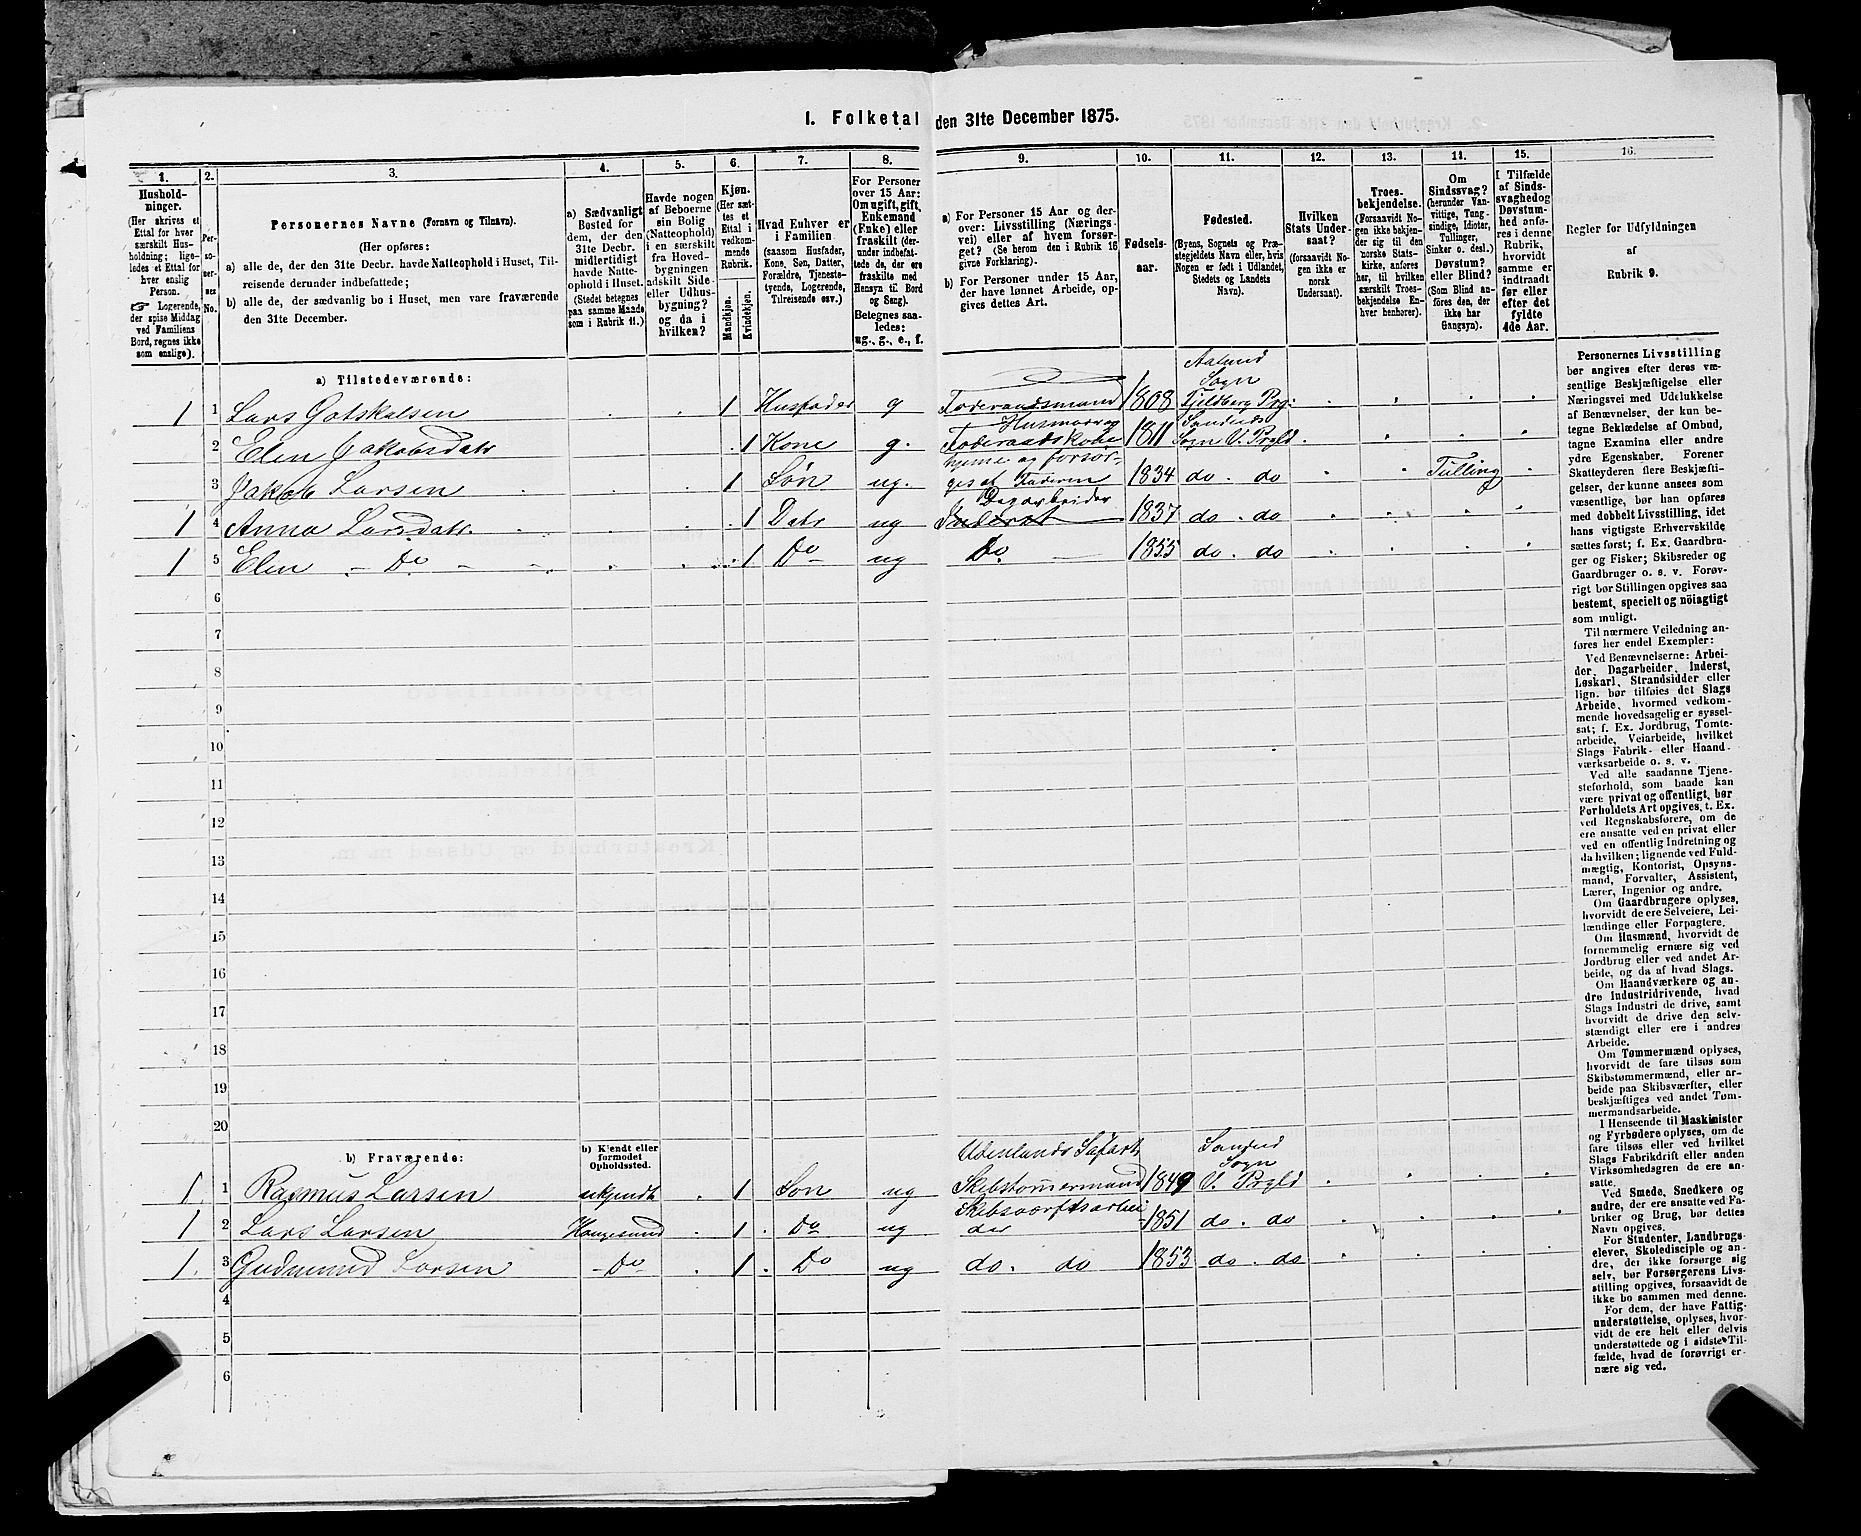 I. Folketal den 31te December 1875.
1. 2. 3. 4. 5. 6. 7. 8. 9. 10. 11. 12. 13. 14. 15. 16.
Hushold-
ninger.
(Her skrives et
Ettal for hver
særskilt Hus-
holdning; lige-
ledes et Ettal for
hver enslig
Person.
☞ Logerende,
der spise Middag
ved Familiens
Bord, regnes ikke
som enslige).
Per-
so-
ner-
nes
No.
Personernes Navne (Fornavn og Tilnavn).
(Her opføres:
a) alle de, der den 31te Decbr. havde Natteophold i Huset, Til-
reisende derunder indbefattede;
b) alle de, der sædvanlig bo i Huset, men vare fraværende
den 31te December.
a) Sædvanligt
Bosted for
dem, der den
31te Decbr.
midlertidigt
havde Natte-
ophold i Huset.
(Stedet betegnes
paa samme Maade
som i Rubrik 11.)
Havde nogen
af Beboerne
sin Bolig
(Natteophold)
i en særskilt
fra Hoved-
bygningen
adskilt Side-
eller Udhus-
bygning?
og da i
hvilken?
Kjøn.
(Her sæt-
tes et
Ettal i
vedkom-
mende
Rubrik.
Mandkjøn.
Kvindekjøn.
Hvad Enhver er
i Familien
(saasom Husfader,
Kone, Søn, Datter,
Forældre, Tjeneste-
tyende, Logerende,
Tilreisende osv.)
For Personer
over 15 Aar:
Om ugift, gift,
Enkemand
(Enke) eller
fraskilt (der-
under indbefat-
tede de, der ere
fraskilte med
Hensyn til Bord
og Seng).
Betegnes saa-
ledes:
ug., g., e., f.
a) For Personer 15 Aar og der-
over: Livsstilling (Nærings-
vei) eller af hvem forsør-
get? (Se herom den i Rubrik 16
givne Forklaring).
b) For Personer under 15 Aar,
der have lønnet Arbeide, op-
gives dettes Art.
Fødsels-
aar.
Fødested.
(Byens, Sognets og Præ-
stegjeldets Navn eller, hvis
Nogen er født i Udlandet,
Stedets og Landets
Navn).
Hvilken
Stats Under-
saat?
(forsaavidt No-
gen ikke er
norsk
Undersaat).
Troes-
bekjendelse.
(Forsaavidt No-
gen ikke bekjen-
der sig til den
norske Stats-
kirke, anføres
her, til hvilken
særskilt Troes-
bekjendelse En-
hver henhører).
Om
Sindssvag?
(herunder Van-
vittige, Tung-
sindige, Idioter,
Tullinger,
Sinker o. desl.)
Døvstum?
eller Blind?
(Som Blind an-
føres den, der
ikke har
Gangsyn).
I Tilfælde
af Sinds-
svaghed og
Døvstum-
hed anfø-
res i denne
Rubrik,
hvorvidt
samme er
indtraadt
før eller
efter det
fyldte
4de Aar.
Regler for Udfyldningen
af
Rubrik 9.
a) Tilstedeværende:
1 1 Lars Gotskalsen 1 Husfader g Føderaadsmand 1808 Aalund Sogn Fjeldberg Prg:
2 Elen Jakobsdatr 1 Kone g. Husmoder og Føderaadskone 1811 Sandeids Sogn V. Prgld
3 Jakob Larsen 1 Søn ug. hjeme og forsør-
ges af Faderen 1834 do. do Tulling
1 4 Anna Larsdatr. 1 Datr ug Dagarbeider Inderst 1837 do. do
1 5 Elen - Do - 1 Do ug Do. 1855 do. do
6
7
8
9
10
11
12
13
14
15
16
17
18
19
20
b) Fraværende:
b) Kjendt eller
formodet
Opholdssted.
1 1 Rasmus Larsen ukjendt 1 Søn ug Udenlands Søfart, Skibstømermand 1849 Sandeid Sogn V. Prgld
1 2 Lars Larsen Haugesund 1 Do ug Skibsværftsarbei
der 1851 do. do
1 3 Gudmund Larsen - Do 1 Do ug do. do 1853 do. do
4
5
6
Personernes Livsstilling
bør angives efter deres væ-
sentlige Beskjæftigelse eller
Næringsvei med Udelukkelse
af Benævnelser, der kun be-
tegne Beklædelse af Ombud,
tagne Examina eller andre
ydre Egenskaber. Forener
Skatteyderen flere Beskjæfti-
gelser, der kunne ansees som
væsentlige, bør han opføres
med dobbelt Livsstilling, idet
hans vigtigste Erhvervskilde
sættes først; f. Ex. Gaardbru-
ger og Fisker; Skibsreder og
Gaardbruger o. s. v. Forøv-
rigt bør Stillingen opgives saa
bestemt, specielt og nöiagtigt
som muligt.
Til nærmere Veiledning an-
føres her endel Exempler:
Ved Benævnelserne: Arbei-
der, Dagarbeider, Inderst,
Løskarl, Strandsidder eller
lign. bør tilføies det Slags
Arbeide, hvormed vedkom-
mende hovedsagelig er syssel-
sat; f. Ex. Jordbrug, Tomte-
arbeide, Veiarbeide, hvilket
Slags Fabrik- eller Haand-
værksarbeide o. s. v.
Ved alle saadanne Tjene-
steforhold, som baade kan
være privat og offentligt, bør
Forholdets Art opgives, t. Ex.
ved Regnskabsførere, om de
ere ansatte ved en privat eller
ved en offentlig Indretning og
da hvilken; lignende ved Fuld-
mægtig, Kontorist, Opsyns-
mand, Forvalter, Assistent,
Lærer, Ingeniør og andre.
Om Gaardbrugere oplyses,
hvorvidt de ere Selveiere, Lei-
lændinge eller Forpagtere.
Om Husmænd, hvorvidt de
fornemmelig ernære sig ved
Jordbrug eller ved andet Ar-
beide, og da af hvad Slags.
Om Haandværkere og an-
dre Industridrivende, hvad
Slags Industri de drive, samt
hvorvidt de drive den selv-
stændigt eller ere i andres
Arbeide.
Om Tømmermænd oplyses,
hvorvidt de fare tilsøs som
Skibstømmermænd, eller ar-
beide paa Skibsværfter, eller
beskjæftiges ved andet Tøm-
mermandsarbeide.
I Henseende til Maskinister
og Fyrbødere oplyses, om de
fare tilsøs eller ved hvilket
Slags Fabrikdrift eller anden
Virksomhedsgren de ere an-
satte.
Ved Smede, Snedkere og
andre, der ere ansatte ved Fa-
briker og Brug, bør dettes
Navn opgives.
For Studenter, Landbrugs-
elever, Skoledisciple og an-
dre, der ikke forsørge sig
selv, bør Forsørgerens Livs-
stilling opgives, forsaavidt de
ikke bo sammen med denne.
For dem, der have Fattig-
understøttelse, oplyses, hvor-
vidt de ere helt eller delvis
understøttede og i sidste Til-
fælde, hvad de forøvrigt er-
nære sig ved.